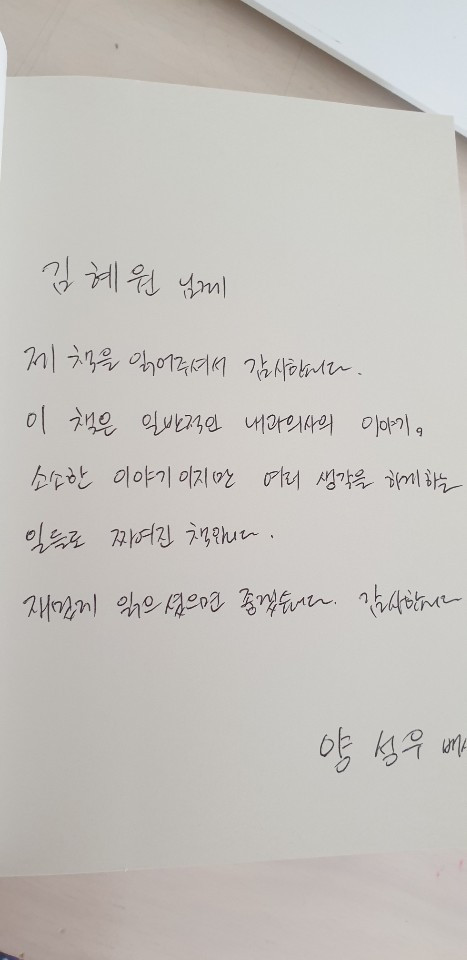 김혜원 님께
제 책을 읽어주셔서 감사합니다.
이 책은 일반적인 내과의사의 이야기.
소소한 이야기이지만 여러 생각을 하게하는
일들로 짜여진 책입니다.
재밌게 읽으셨으면 좋겠습니다. 감사합니다
양성우